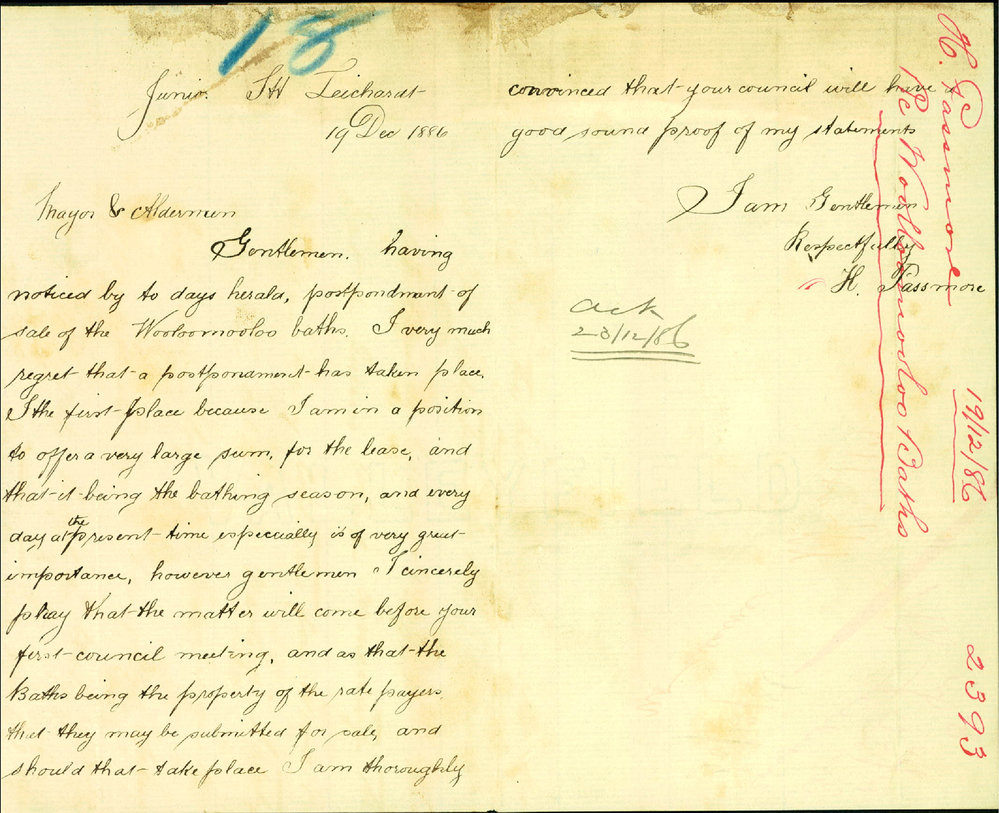 18
Junior. St Leichardt
19 Dec 1886
Mayor & Aldermen
Gentlemen. having
noticed by to days herald, postpondment of
sale of the Wooloomooloo baths. I very much
regret that a postponament has taken place.
I the first place because I am in a position
to offer a very large sum, for the lease, and
that it being the bathing season, and every
day at the present time especially is of very great
importance, however gentlemen I cincerely
pray that the matter will come before your
first council meeting, and as that the
Baths being the property of the rate payers.
that they may be submitted for sale, and
should that take place I am thoroughly
convinced that your council will have a
good sound proof of my statements
I am Gentlemen
Respectfully
H. Passmore
ack
23/12/86
H. Passmore
Re Woolloomooloo Baths
19/12/86
2393